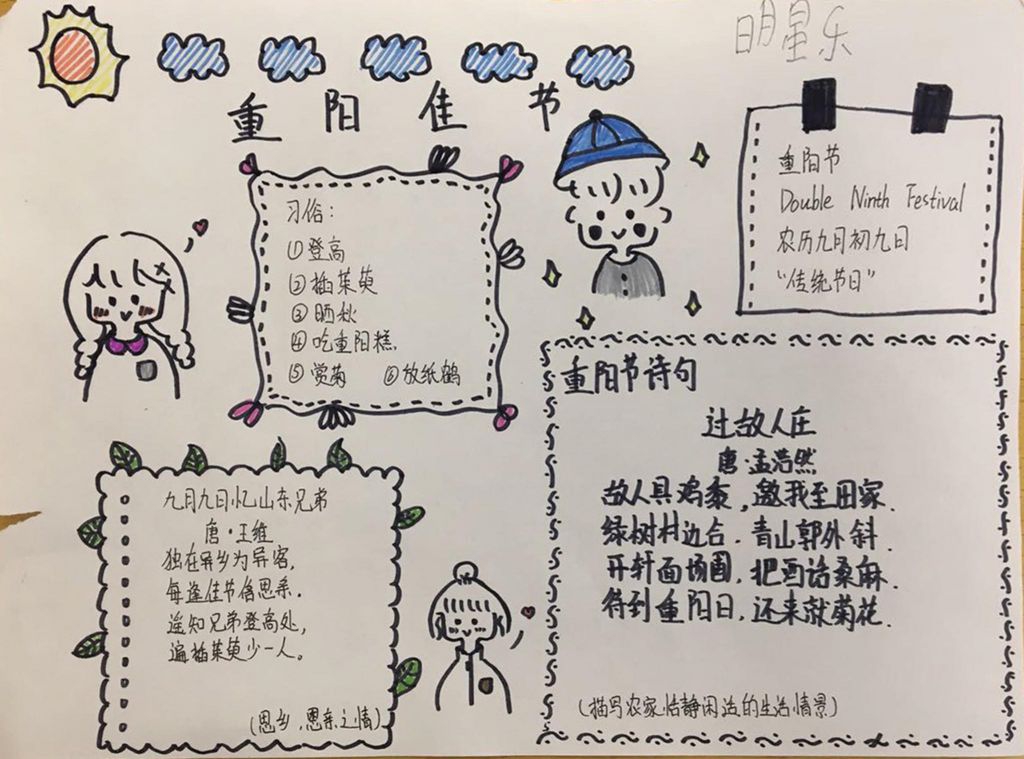 明星乐
重阳佳节
重阳节
Double Ninth Festival
农历九月初九日
“传统节日”
习俗:
①登高
②插茱萸
③晒秋
④吃重阳糕.
⑤赏菊 ⑥放纸鹤
重阳节诗句
过故人庄
唐·孟浩然
故人具鸡黍,邀我至田家.
绿树村边合.青山郭外斜.
开轩面场圃,把酒话桑麻.
待到重阳日,还来就菊花.
(描写农家恬静闲适的生活情景)
九月九日忆山东兄弟
唐·王维
独在异乡为异客,
每逢佳节倍思亲.
遥知兄弟登高处,
遍插茱萸少一人。
(思乡,思亲之情)